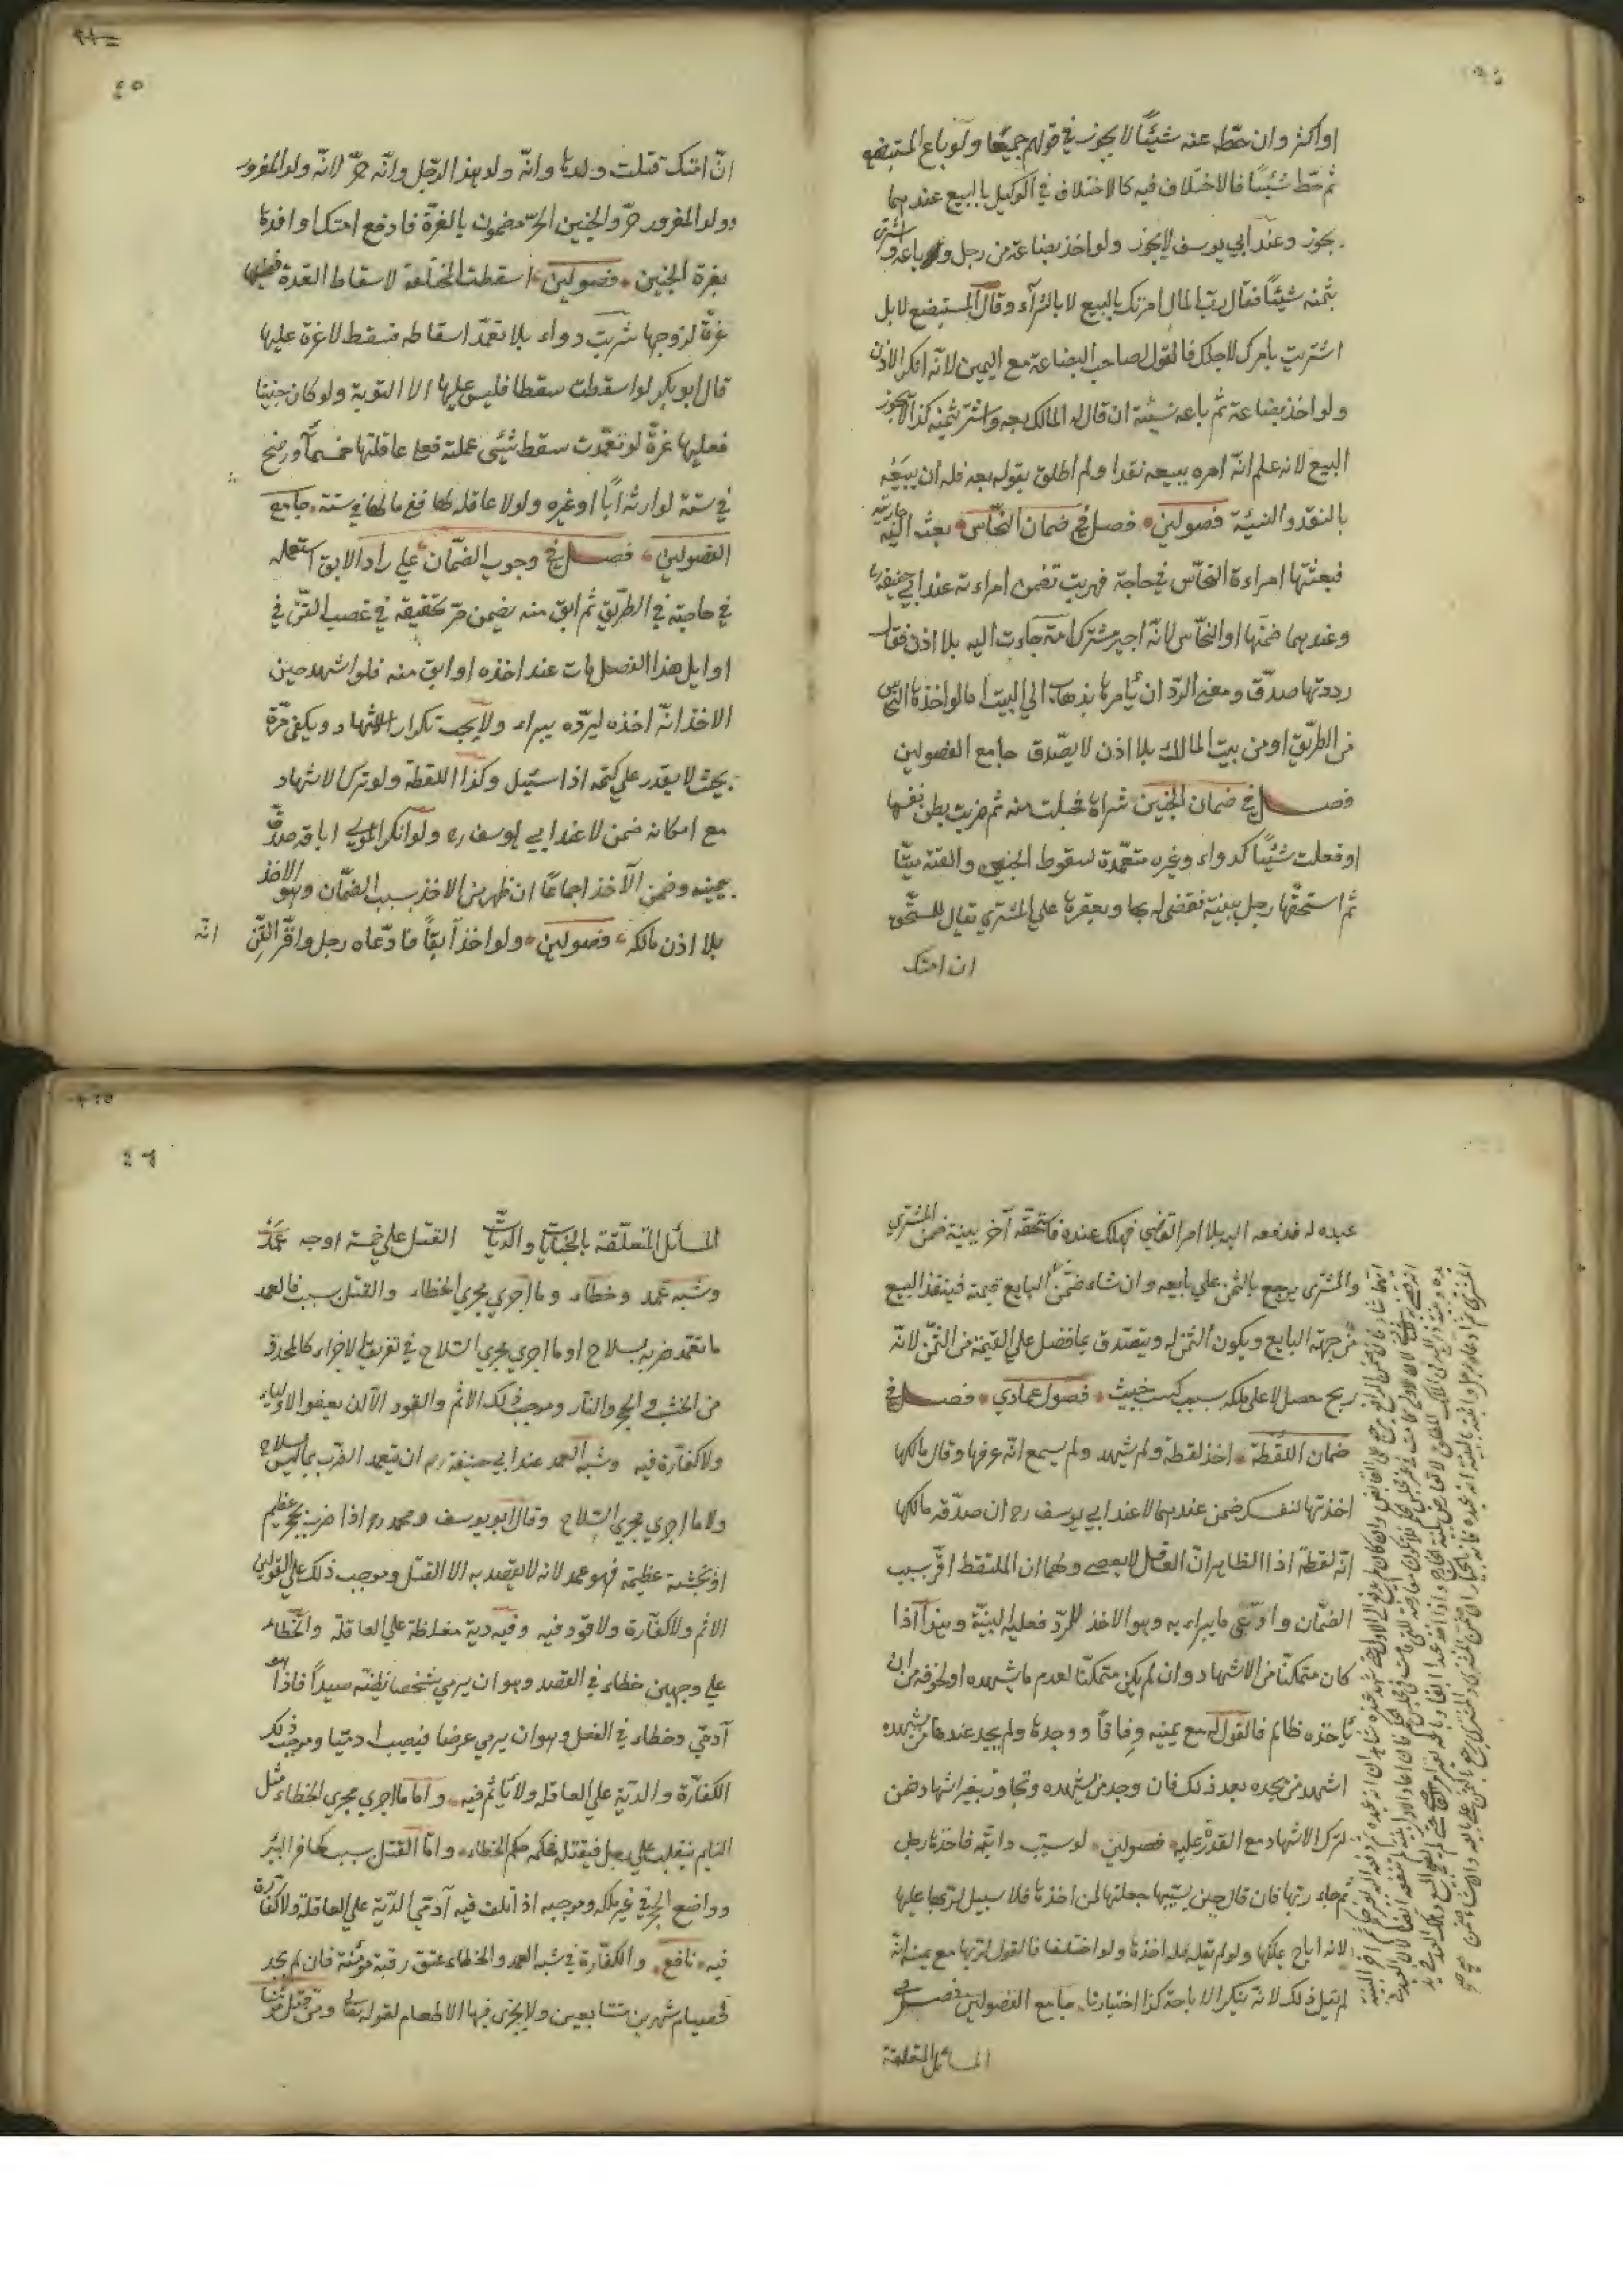 او اكثر وان حطّ عنه شيئًا لا يجوز في قولهم جميعًا ولو باع المستبضع
ثم حط شيئًا فالاختلاف فيه كالاختلاف في الوكيل بالبيع عندهما
يجوز وعند ابي يوسف لا يجوز ولو اخذ بضاعة من رجل وباعه واشترى
بثمنه شيئًا فقال ربّ المال امرتك بالبيع لا بالشرآء وقال المستبضع لا بل
اشتريت بامرك لاجلك فالقول لصاحب البضاعة مع اليمين لانّه انكر الاذن
ولو اخذ بضاعة ثم باعه نسيئة ان قال له المالك بعه واشتر بثمنه كذا لا يجوز
البيع لانه علم انّه امره ببيعه نقدا ولم اطلق بقوله بعه فله ان يبيعه
بالنقد والنسيئة فصولين فصل في ضمان النخّاس بعث اليه جاريته
فبعثتها امراءة النخّاس في حاجة فهربت تضمن امراءته عند ابي حنيفة ره
وعندهما ضمنها او النخّاس لانّه اجير مشترك امة جاءت اليه بلا اذن فقال
رددتها صدّق ومعنى الردّ ان يأمرها بذهاب الى البيت اما لو اخذها النخّاس
من الطريق او من بيت المالك بلا اذن لا يصدّق جامع الفصولين
فصل في ضمان الجنين شراه فحبلت منه ثم ضربت بطن نفسها
او فعلت شيئًا كدواء وغيره متعمّدة لسقوط الجنين والقته ميتا
ثم استحقّها رجل ببينة فقضى له بها وبعقرها على المشتري يقال للمستحق
ان امتك
٤٥
انّ امتك قتلت ولدها وانّه ولد هذا الرّجل وانّه حرّ لانّه ولد المغرور
وولد المغرور حرّ والجنين الحرّ مضمون بالغرّة فادفع امتك او افدها
بغرة الجنين فصولين اسقطت المختلعة لاسقاط العدة فعليها
غرّة لزوجها شربت دواء بلا تعمّد اسقاطه فسقط لا غرة عليها
قال ابو بكر لو اسقطت سقطا فليس عليها الا التوبة ولو كان جنينا
فعليها غرّة لو تعمّدت سقط شيئ عملته فعلى عاقلتها خمسمائة درهم
في سنة لوارثه ابًا او غيره ولو لا عاقلة لها ففي مالها في سنة جامع
الفصولين فصل في وجوب الضمّان على رادّ الابق استعمله
في حاجته في الطريق ثم ابق منه يضمن مرّ تحقيقه في غصب القنّ في
اوايل هذا الفصل مات عند اخذه او ابق منه فلو اشهد حين
الاخذ انّه اخذه ليردّه يبراء ولا يجب تكرار الاشهاد ويكفي مرّة
بحيث لا يقدر على كتمه اذا سئيل وكذا اللقطة ولو ترك الاشهاد
مع امكانه ضمن لا عند ابي يوسف ره ولو انكر المولى اباقه صدّق
بيمينه وضمن الآخذ اجماعًا ان ظهر من الاخذ سبب الضمّان وهو الاخذ
بلا اذن مالكه فصولين ولو اخذ آبقًا فادّعاه رجل واقرّ القنّ انّه
عبده له فدفعه اليه بلا امر القاضي فهلك عنده فاستحقّه آخر ببينة ضمن المشتري
والمشترى يرجع بالثمن على بايعه وان شاء ضمّن البايع قيمته فينفذ البيع
من جهة البايع ويكون الثمن له ويتصدق بما فضل على القيمة من الثمن لانّه
ربح حصل لا على ملكه بسبب كسب خبيث فصول عمادي فصل في
ضمان اللقطة اخذ لقطة ولم يشهد ولم يسمع انّه عرفها وقال مالكها
اخذتها لنفسك ضمن عندهما لا عند ابي يوسف ره ان صدّقه مالكها
انّه لقطة اذا الظاهر انّ العاقل لا يعصي ولهما ان الملتقط اقرّ بسبب
الضمّان وادّعى ما يبراءبه وهو الاخذ للردّ فعليه البينة وهذا اذا
كان متمكنًا من الاشهاد وان لم يكن متمكنًا لعدم ما يشهده او لخوفه من ان
يأخذه ظالم فالقول له مع يمينه وفاقًا ووجدها ولم يجد عندها من يشهده
اشهد من يجده بعد ذلك فان وجد من يشهده وتجاوز بغير اشهاد ضمن
لترك الاشهاد مع القدرة عليه فصولين لو سيّب دابّته فاخذها رجل
ثم جاء ربّها فان قال حين يسيّبها جعلتها لمن اخذها فلا سبيل لربّها عليها
لانه اباح تملكها ولو لم يقل فله اخذها ولو اختلفا فالقول لربّها مع يمينه انّه
لم يقل ذلك لانه ينكر الاباحة كذا اختيارنا جامع الفصولين فصل في
المسائل المتعلقة
٤٦
المسائل المتعلّقة بالجنايات والديات القتل على خمسة اوجه عمد
وشبه عمد وخطاء وما اجري مجرى الخطاء والقتل بسبب فالعمد
ما تعمّد ضربه بسلاح او ما اجري مجرى السّلاح في تفريق الاجزاء كالمحدد
من الخشب والحجر والنار وموجب ذلك الاثم والقود الا ان يعفو الاولياء
ولا كفّارة فيه وشبه العمد عند ابي حنيفة ره ان يتعمد الضرب بما ليس بسلاح
ولا ما اجري مجرى السّلاح وقال ابو يوسف ومحمد ره اذا ضربه بحجر عظيم
او بخشبة عظيمة فهو عمد لانه لا يقصد به الا القتل وموجب ذلك على القولين
الاثم ولا كفّارة ولا قود فيه وفيه دية مغلظة على العاقلة والخطاء
على وجهين خطاء في القصد وهو ان يرمي شخصا يظنّه صيدًا فاذا هو
آدمي وخطاء في الفعل وهو ان يرمي غرضا فيصيب ادميّا وموجب ذلك
الكفّارة والديّة على العاقلة ولا يأثم فيه واما ما اجري مجرى الخطاء مثل
النايم ينقلب على رجل فيقتله فحكمه حكم الخطاء وامّا القتل بسبب كحافر البئر
وواضع الحجر في غير ملكه وموجبه اذا تلف فيه آدميّ الديّة على العاقلة ولا كفّارة
فيه نافع والكفّارة في شبه العمد والخطاء عتق رقبة مؤمنة فان لم يجد
فصيام شهرين متتابعين ولا يجزى فيها الاطعام لقوله تعالى ومن قتل مؤمنا